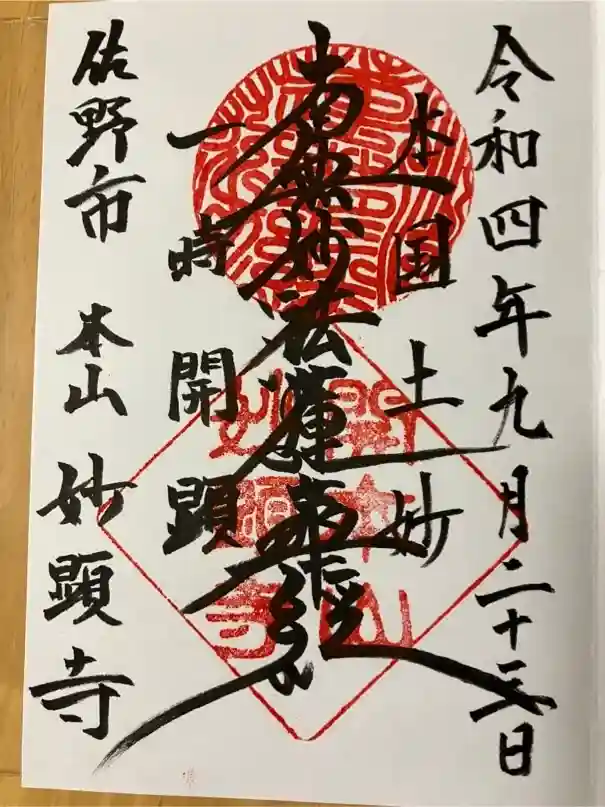 令和四年九月二十三日
本国土妙
南無妙法蓮華経
一時開顕
佐野市 本山 妙顕寺